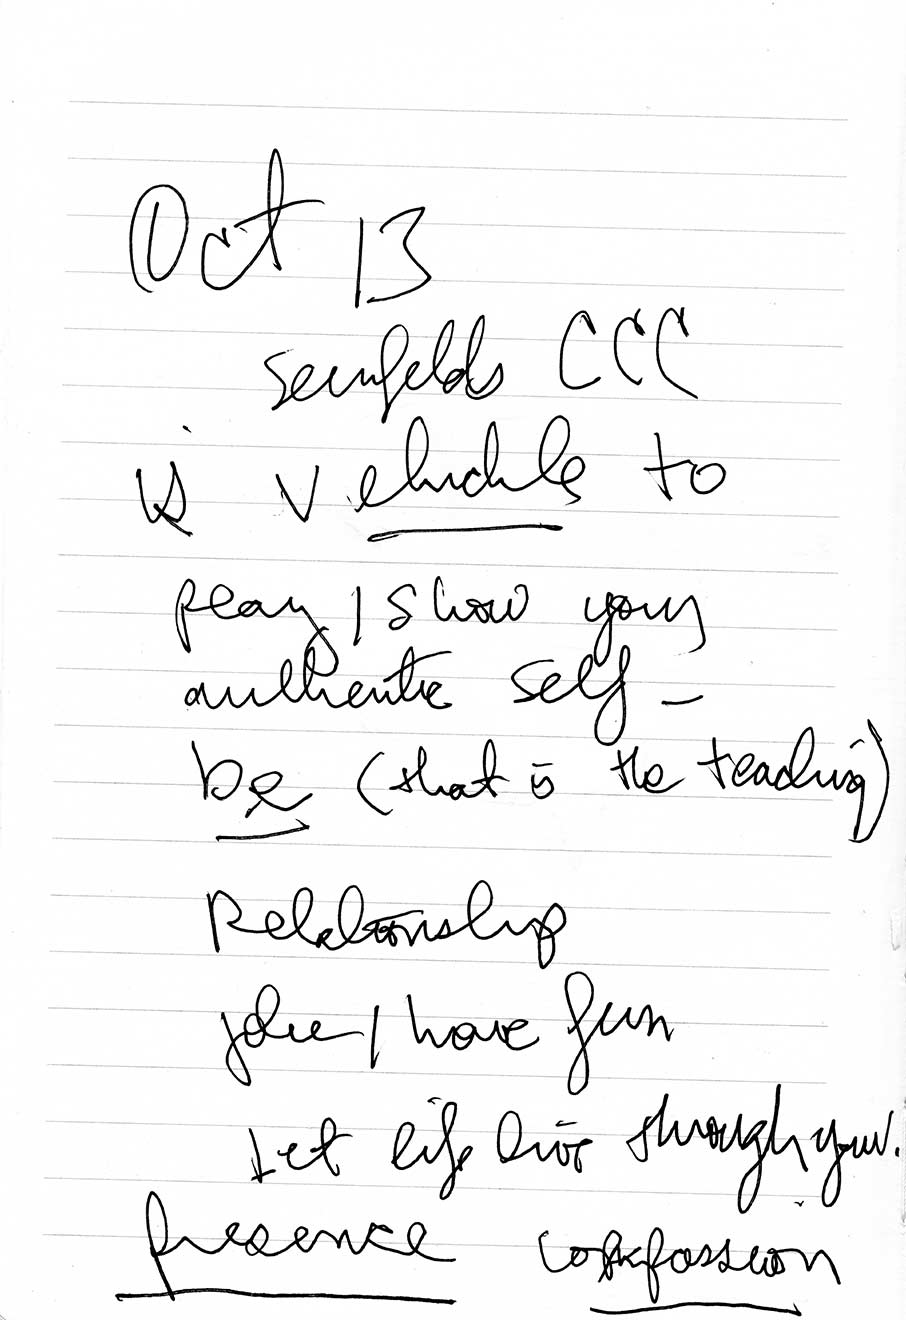 Oct 13
Seinfelds CCC
is vehichle to
play / show your
authentic self -
be (that is the teaching)
Relationship
joke / have fun
Let life live through you.
presence compassion